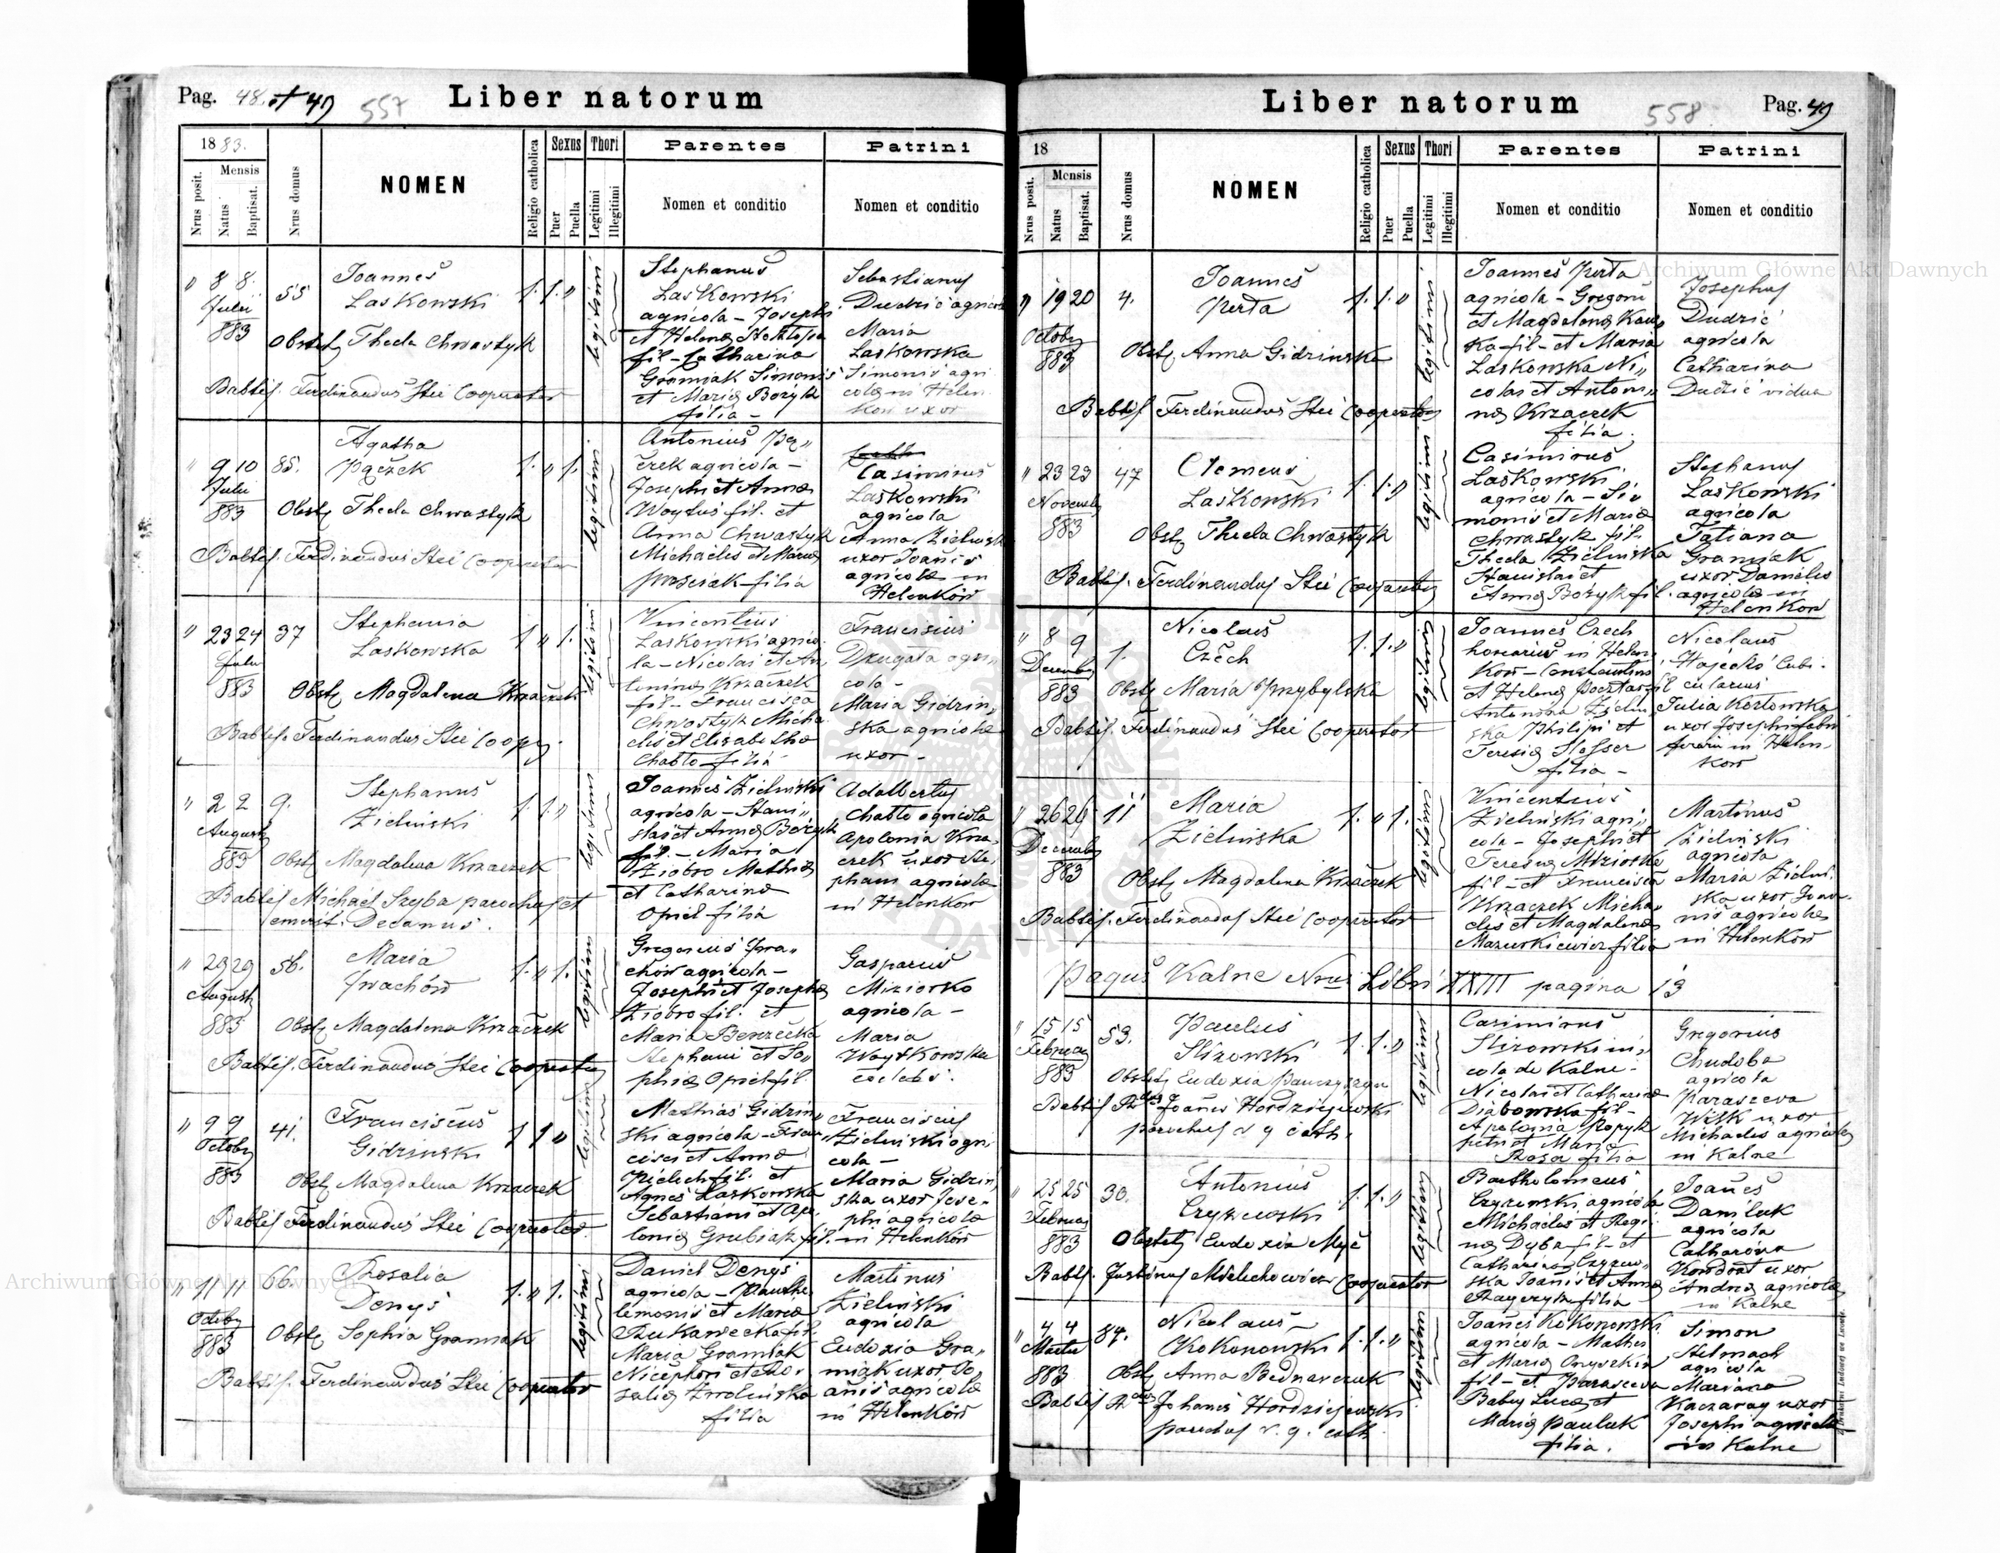 Pag. 48. et 49 557 Liber natorum
1883.
Nrus posit.
Mensis
Natus
Baptisat.
Nrus domus
NOMEN
Religio catholica
Sexus
Puer
Puella
Thori
Legitimi
Illegitimi
Parentes
Nomen et conditio
Patrini
Nomen et conditio
" 8 8. Julii 883
55
Joannes
Laskowski
1. 1. "
legitimi
Obstet Thecla Chwastyk
Babtis. Ferdinandus Steć Cooperator
Stephanus
Laskowski
agricola – Josephi
et Helena
fil – Catharina
Gramiak Simonis
et Maria Bożyk
filia –
Sebastianus
Dudzic agricola
Maria
Laskowska
Simonis agri
cola in Helen
kow uxor
" 9 10 Julii 883
85.
Agatha
Pączek
1. " 1.
legitimi
Obst Thecla Chwastyk
Babtis. Ferdinandus Steć Cooperator
Antonius Pą„
czek agricola –
Josephi et Anna
Woytuś fil. et
Anna Chwastyk
Michaelis et Maria
filia
Casimirus
Laskowski
agricola
Anna Zielinska
uxor Joannis
agricola in
Helenków
" 23 24 Julii 883
37
Stephania
Laskowska
1 " 1.
legitimi
Obst Magdalena Krzaczek
Babtis. Ferdinandus Steć Coop
Vincentius
Laskowski agrico
la – Nicolai et An
tonina Krzaczek
fil – Francisca
Chwastyk Micha
elis et Elisabetha
Chabło filia
Franciscus
Dzugała agri
cola –
Maria Gidzin„
ska agricola
uxor –
" 2 2 Augusti 883
9.
Stephanus
Zielinski
1. 1. "
legitimi
Obst Magdalena Krzaczek
Babtis Michael Szyba parochus et
emerit. Decanus.
Joannes Zielinski
agricola – Stani„
slai et Anna Bożyk
fil. – Maria
Ziobro Mathia
et Catharina
Opiel filia
Adalbertus
Chabło agricola
Apolonia Krza„
czek uxor Ste„
phani agricola
in Helenkow
" 29 29 Augusti 883
56.
Maria
Iwachów
1. " 1.
legitimi
Obst Magdalena Krzaczek
Babtis. Ferdinandus Steć Cooperator
Gregorius Iwa„
chów agricola –
Josephi et Josepha
Ziobro fil. et
Maria
Stephani et So„
phia Opiel fil.
Gasparus
Miziorko
agricola –
Maria
Woytkowska
caelebs.
" 9 9 October 883
41.
Franciscus
Gidzinski
1 1 "
legitimi
Obst Magdalena Krzaczek
Babtis Ferdinandus Steć Cooperator
Mathias Gidzin
ski agricola – Fran„
cisci et Anna
Pielech fil. et
Agnes Laskowska
Sebastiani et Apo
lonia Grubiak fil.
Franciscus
Zielinski agri
cola –
Maria Gidzin„
ska uxor Jose„
phi agricola
in Helenków
" 11 11 October 883
66.
Rosalia
Denys
1. " 1.
legitimi
Obst Sophia Gramiak
Babtis. Ferdinandus Steć Cooperator
Daniel Denys
agricola – Pante
lemonis et Maria
fil.
Maria Gramiak
Nicephori et Ro„
salia
filia
Martinus
Zielinski
agricola
Eudoxia Gra„
miak uxor Jo„
annis agricola
in Helenków
Liber natorum 558 Pag. 49
18
Nrus posit.
Mensis
Natus
Baptisat.
Nrus domus
NOMEN
Religio catholica
Sexus
Puer
Puella
Thori
Legitimi
Illegitimi
Parentes
Nomen et conditio
Patrini
Nomen et conditio
" 19 20 October 883
4.
Joannes
Perta
1. 1. "
legitimi
Obst Anna Gidzinska
Babtis Ferdinandus Steć Cooperator
Joannes Perta
agricola – Gregorii
et Magdalena
fil – et Maria
Laskowska Ni„
colai et Anton„
na Krzaczek
filia.
Josephus
Dudzic
agricola
Catharina
Dudzic vidua
" 23 23 November 883
47
Clemens
Laskowski
1 1 "
legitimi
Obst Thecla Chwastyk
Babtis. Ferdinandus Steć Cooperator
Casimirus
Laskowski
agricola – Si„
monis et Maria
Chwastyk fil.
Thecla Zielinska
Stanislai et
Anna Bożyk fil.
Stephanus
Laskowski
agricola
Tatiana
Gramiak
uxor Danielis
agricola in
Helenkow
" 8 9 December 883
1.
Nicolaus
Czech
1. 1. "
legitimi
Obst Maria Przybylska
Babtis. Ferdinandus Steć Cooperator
Joannes Czech
in Helen
kow – Constantini
et Helena fil
Antonina Zielin
ska Philipi et
Teresia Slosser
filia –
Nicolaus
Wojecko cubi
cularius
Julia Kozlowska
uxor Josephi
in Helen
kow
" 26 26 December 883
11
Maria
Zielinska
1. " 1.
legitimi
Obst Magdalena Krzaczek
Babtis. Ferdinandus Steć Cooperator
Vincentius
Zielinski agri„
cola – Josephi et
Teresia Miziorko
fil – et Francisca
Krzaczek Micha„
elis et Magdalena
Mazurkiewicz filia
Martinus
Zielinski
agricola
Maria Zielin
ska uxor Joan
nis agricola
in Helenkow
Pagus Kalne Nrus Libri XXIII pagina 13
" 15 15 Februar 883
53.
Paulus
Slizowski
1. 1. "
legitimi
Obstet Eudoxia
Babtis Joannes Hordziejewski
parochus r. g. cath.
Casimirus
Slizowski in„
cola de Kalne –
Nicolai et Catharina
Diabowska fil –
Apolonia Kopyk
petri et Maria
Rosa filia
Gregorius
Chudoba
agricola
Paraszewa
Wilk uxor
Michaelis agricola
in Kalne
" 25 25 Februar 883
30.
Antonius
Czyzewski
1. 1. "
legitimi
Obstet Eudoxia Myć
Babtis. Justinus Mielechowicz Cooperator
Bartholomeus
Czyzewski agricola
Michaelis et Regi„
na Dyba fil – et
Catharina Czyzew„
ska Joannis et Anna
filia
Joannes
Daniluk
agricola
Catharina
Kondrat uxor
Andrea agricola
in Kalne
" 4 4 Martii 883
84.
Nicolaus –
Kokonowski
1. 1. "
legitimi
Obst Anna Bednarczuk
Babtis Johannes Hordziejewski
parochus r. g. cath.
Joannes Kokonowski
agricola – Mathei
et Maria
fil – et Parasceva
Babey Luca et
Maria Pauluk
filia.
Simon
Stelmach
agricola
Mariana
Kaczaray uxor
Josephi agricola
in Kalne
Archiwum Główne Akt Dawnych
Archiwum Główne Akt Dawnych